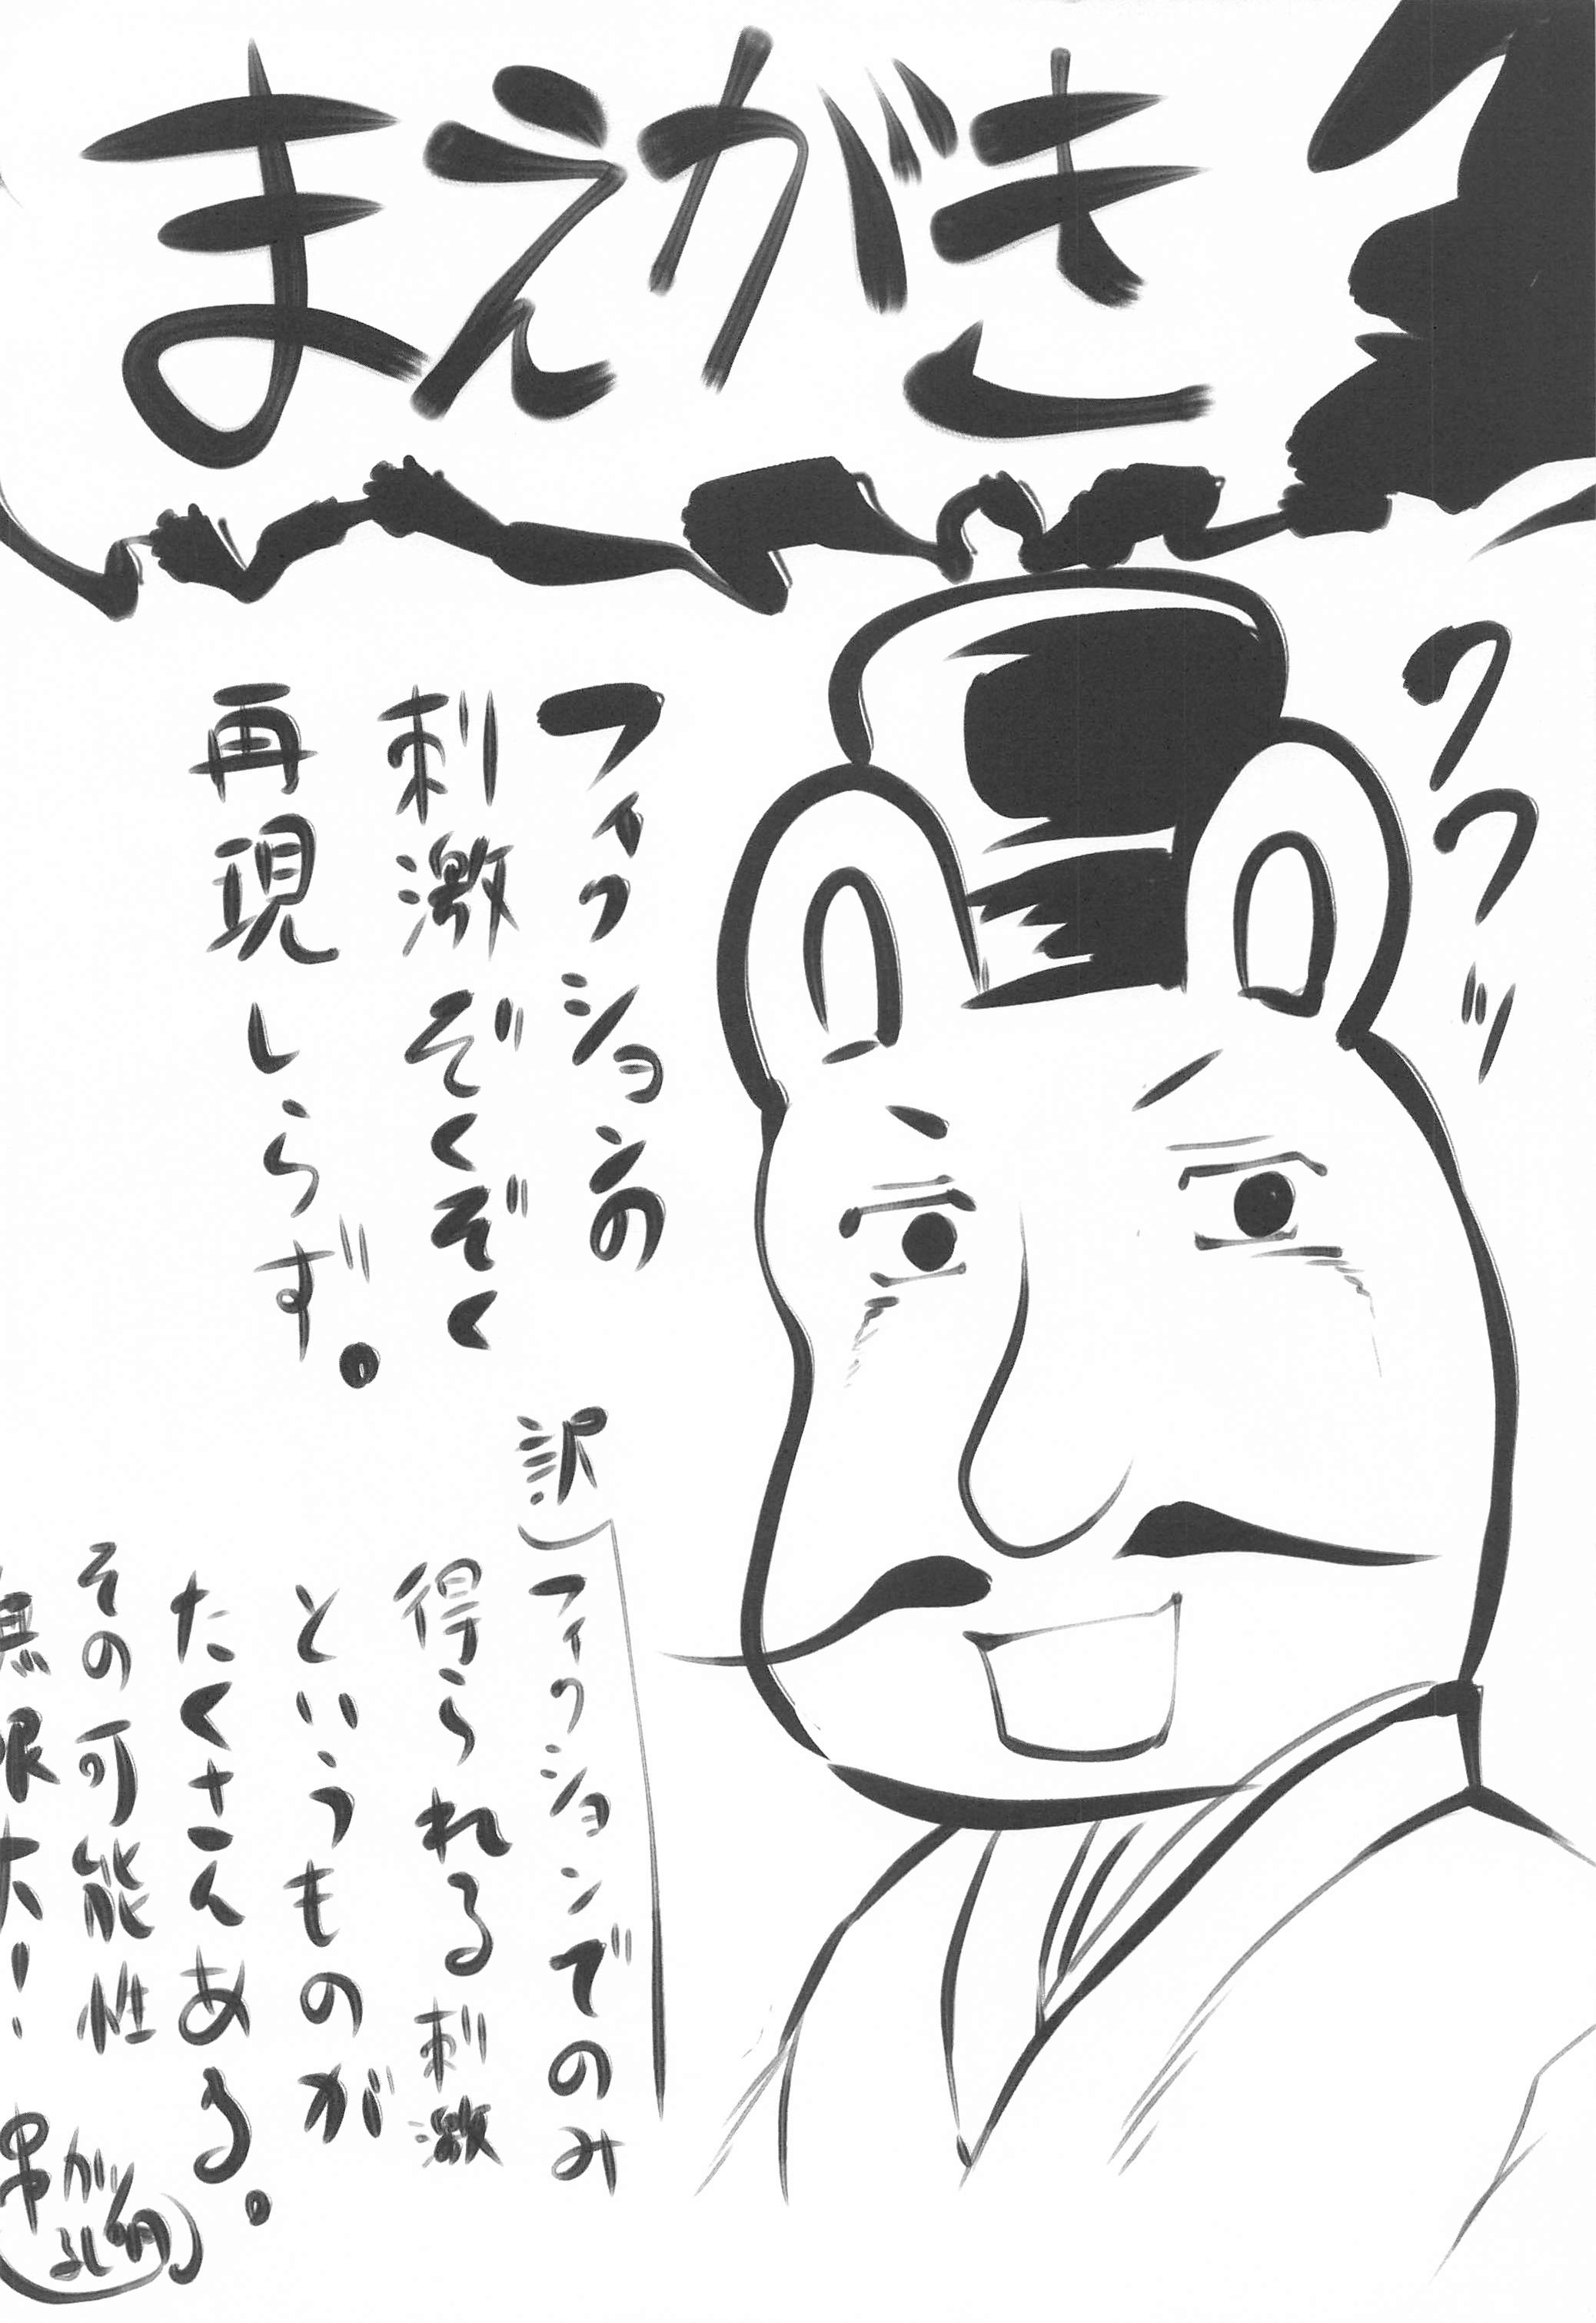 まえがき
ククッ
フィクションの
刺激ぞくぞく
再現しらず。
訳)フィクションでのみ
得られる刺激
というものが
たくさんある。
その可能性
無限大!
串